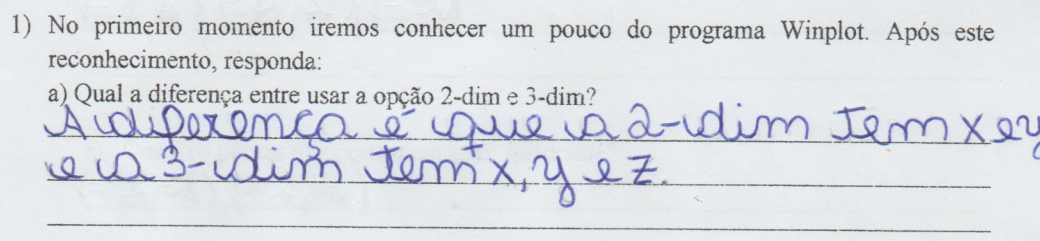 1) No primeiro momento iremos conhecer um pouco do programa Winplot. Após este
reconhecimento, responda:
a) Qual a diferença entre usar a opção 2-dim e 3-dim?
A diferença é que a 2-dim tem x e y
e a 3-dim tem x, y e z.